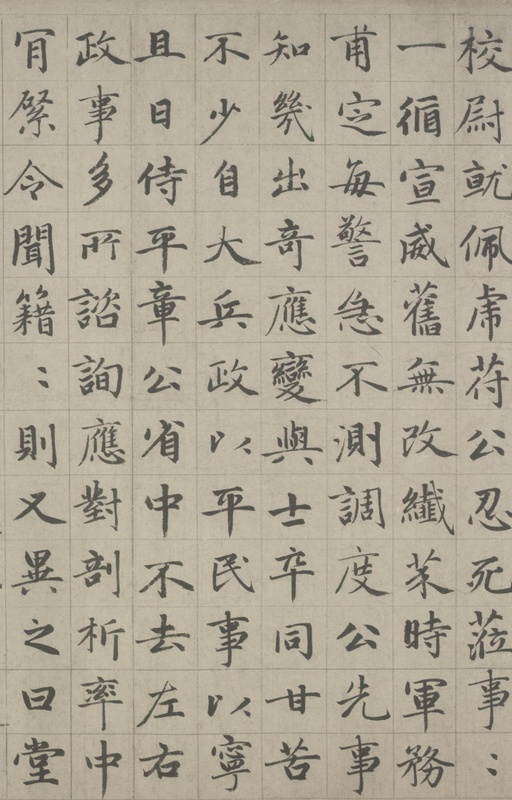 校尉就佩虎苻公忍死莅事〻
一循宣威舊無改纖芥時軍務
甫定每警急不測調度公先事
知幾出奇應變與士卒同甘苦
不少自大兵政以平民事以寧
且日侍平章公省中不去左右
政事多所諮詢應對剖析率中
肎綮令聞籍〻則又異之曰堂